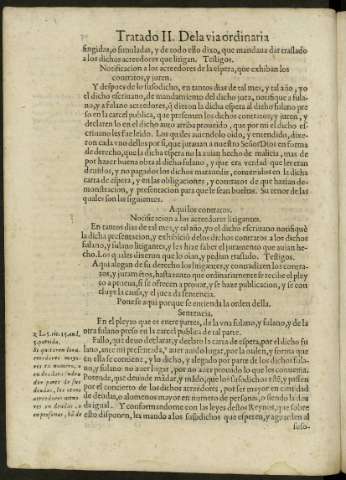 Tratado II. De la via ordinaria
fingidas, o simuladas, y de todo esto dixo, que mandaua dar traslado
a los dichos acreedores que litigan. Testigos.
Notificacion a los acreedores de la espera, que exhiban los
contratos, y juren.
Y despues de lo susodicho, en tantos dias de tal mes, y tal año, yo
el dicho escriuano, de mandamiento del dicho juez, notifique a fula-
no, y a fulano acreedores, q̃ dieron la dicha espera al dicho fulano pre
so en la carcel publica, que presenten los dichos contratos, y juren, y
declaren lo en el dicho auto arriba proueido, que por mi el dicho es-
criuano les fue leido. Los quales auiendolo oido, y entendido, dixe-
ron cada vno dellos por si, que jurauan a nuestro Señor Dios en forma
de derecho, que la dicha espera no la auian hecho de malicia, mas de
por hazer buena obra al dicho fulano, y que era verdad que les eran
deudas, y no pagados los dichos marauedis, contenidos en la dicha
carta de espera, y en las obligaciones, y contratos de que hazian de-
monstracion, y presentacion para que le sean bueltos. Su tenor de las
quales son las siguientes.
Aqui los contratos.
Notificacion a los acreedores litigantes.
En tantos dias de tal mes, y tal año, yo el dicho escriuano notifiquè
la dicha presentacion, y exhibiciō de los dichos contratos a los dichos
fulano, y fulano litigantes, y les hize saber el juramento que auian he-
cho. Los quales dixeron que lo oian, y pedian traslado. Testigos.
Aqui alegan de su derecho los litigantes, y contradizen los contra-
tos, y juramētos, hasta tanto que ordinariamente se recibe el pley
to a prueua, si se ofrecen a prouar, y se haze publicacion, y se con
cluye la causa, y el juez da sentencia.
Ponese aqui porque se entienda la orden della.
Sentencia.
En el pleyto que es entre partes, de la vna fulano, y fulano, y de la
otra fulano preso en la carcel publica de tal parte.
Fallo, que deuo declarar, y declaro la carta de espera, por el dicho fu
lano, ante mi presentada, auer auido lugar, por la quiere, y forma que
en ella se contiene, y lo dicho, y alegado por parte de los dichos fula-
no, y fulano no auer lugar, por no auer prouado lo que les conuenia.
Por ende, que deuo de mādar, y mādo, que los susodichos estē, y passen
por el concierto de los dichos acreedores, por ser mayor en cantidad
de deudas, o alomenos mayor en numero de personas, o siendo la deu
da igual. Y conformandome con las leyes destos Reynos, que sobre
esto disponen, les mando a los susodichos que esperen, y aguarden al
suso-
5. partida.